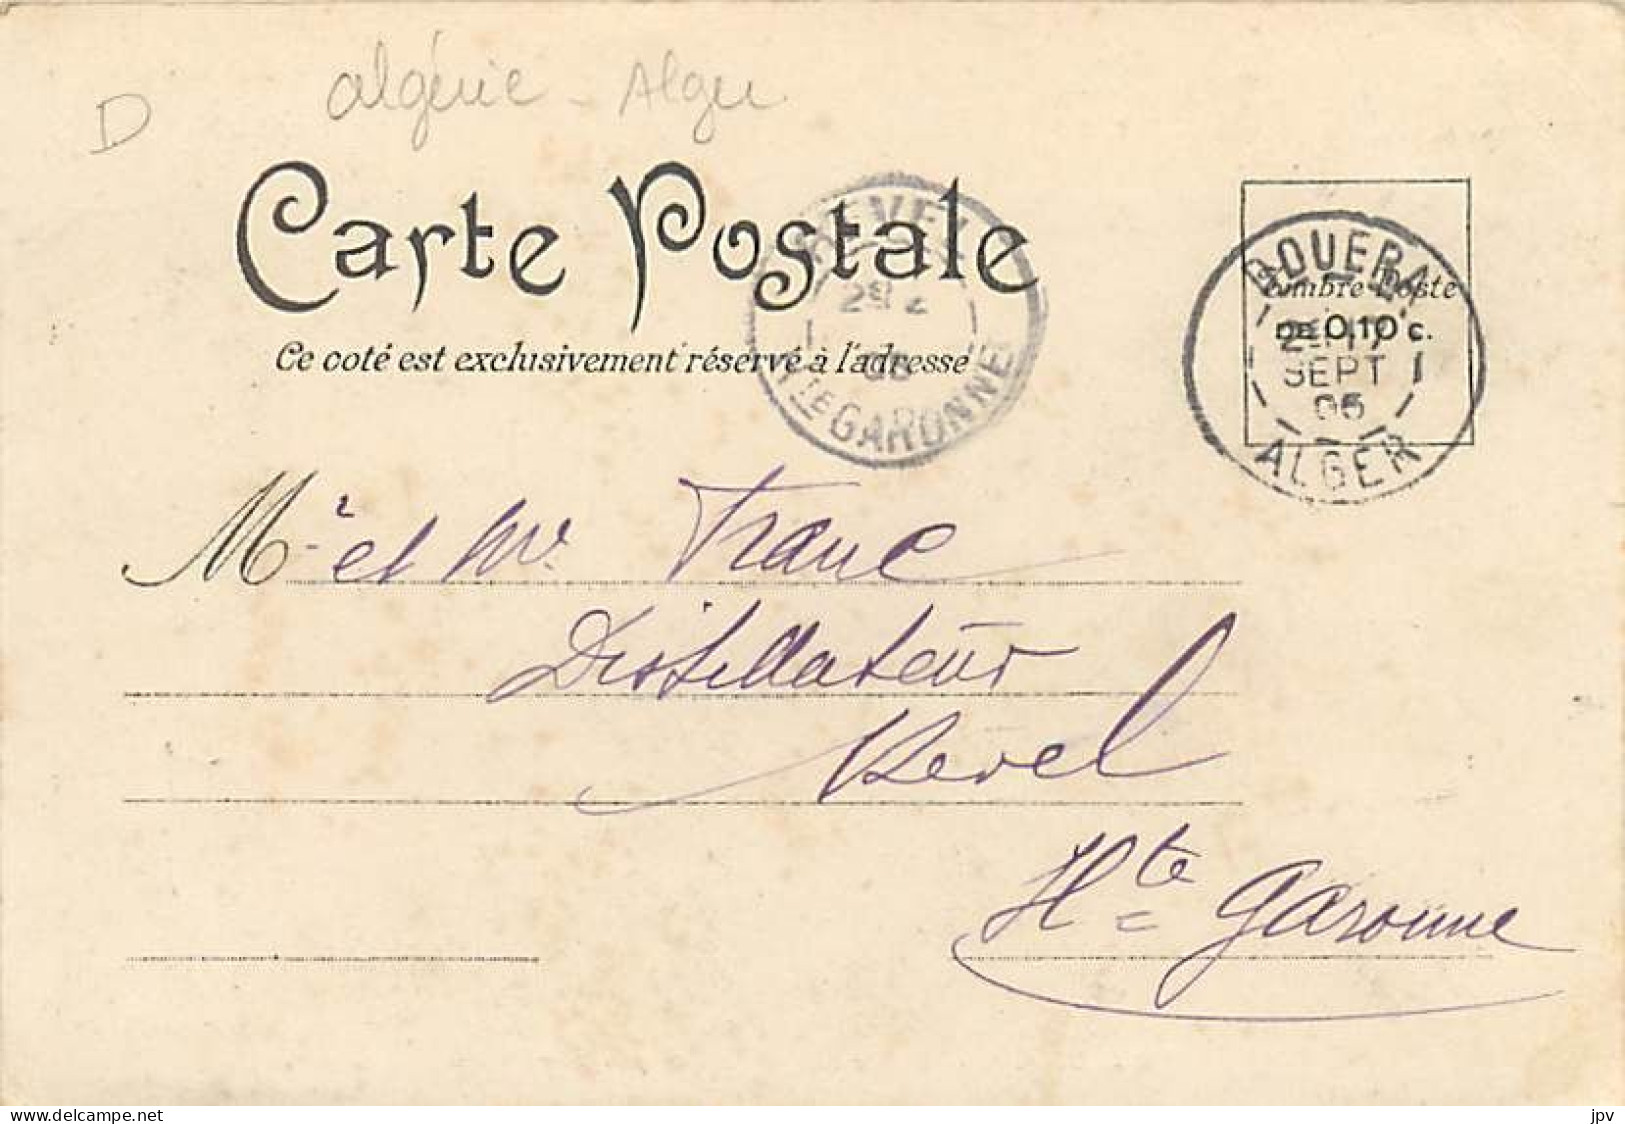 algérie - Alger
D
Carte Postale
Ce coté est exclusivement réservé à l'adresse
REVEL
2E
Hte GARONNE
Timbre-Poste
DE 0,10 c.
ROUERA
2E 17
SEPT
05
ALGER
Mr et Me Franc
Distillateur
Revel
Hte Garonne
www.delcampe.net
jpv